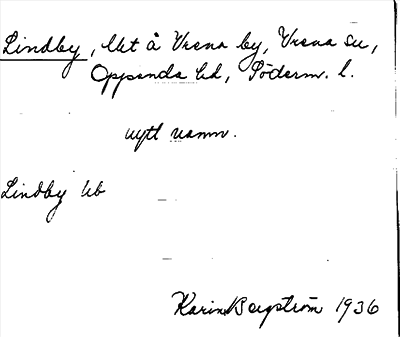 Lindby, lht å Vrena by, Vrena sn,
Oppunda hd, Söderm. l.
nytt namn.
Lindby hb
Karin Bergström 1936